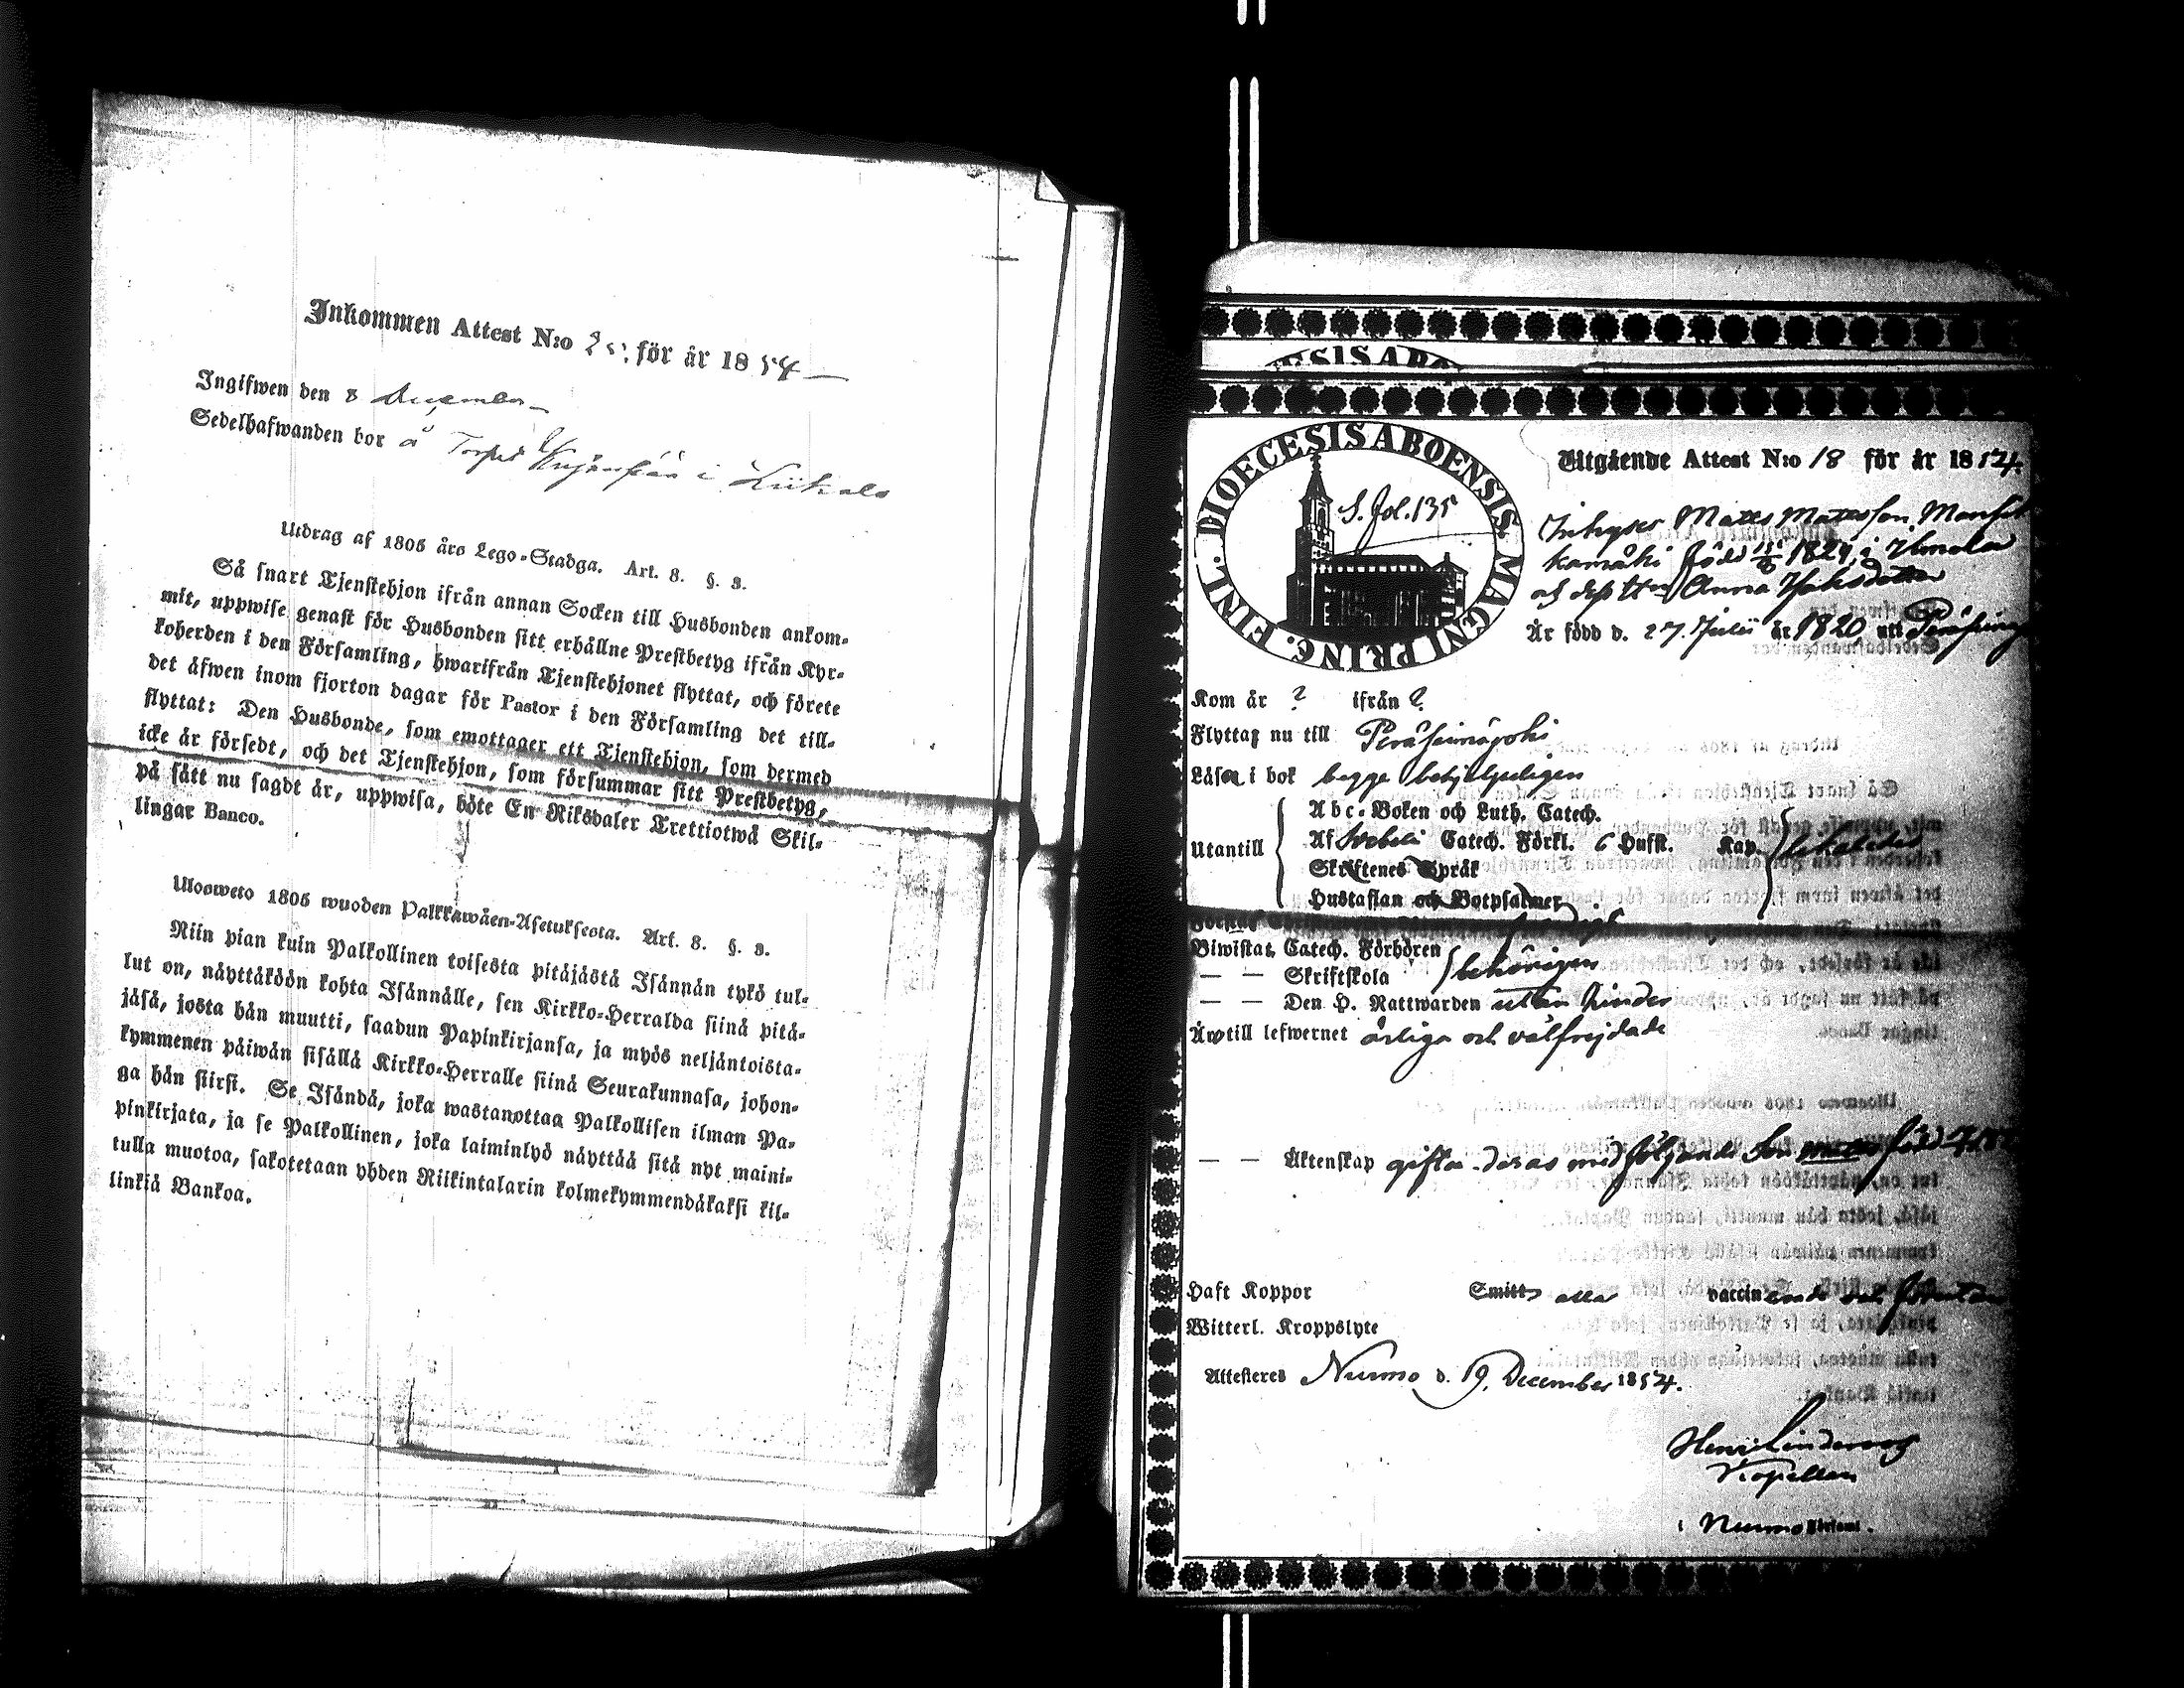 Inkommen Attest N:o för år 1854
Ingifwen den 8 December
Sedelhafwanden bor å Torpet i
Utdrag af 1805 års Lego-Stadga. Art. 8. §. 3.
Så snart Tjenstehjon ifrån annan Socken till Husbonden ankom-
mit, uppwise genast för Husbonden sitt erhållne Prestbetyg ifrån Kyr-
koherden i den Församling, hwarifrån Tjenstehjonet flyttat, och förete
det äfwen inom fjorton dagar för Pastor i den Församling det till-
flyttat: Den Husbonde, som emottager ett Tjenstehjon, som dermed
icke är försedt, och det Tjenstehjon, som försummar sitt Prestbetyg,
på sätt nu sagdt är, uppwisa, böte En Riksdaler Trettiotwå Skil-
lingar Banco.
Ulosweto 1805 wuoden Palkkawäen-Asetuksesta. Art. 8. §. 3.
Niin pian kuin Palkollinen toisesta pitäjästä Isännän tykö tul-
lut on, näyttäköön kohta Isännälle, sen Kirkko-Herralda siinä pitä-
jäsä, josta hän muutti, saadun Papinkirjansa, ja myös neljäntoista-
kymmenen päiwän sisällä Kirkko-Herralle siinä Seurakunnasa, johon-
ga hän siirsi. Se Isändä, joka wastanottaa Palkollisen ilman Pa-
pinkirjata, ja se Palkollinen, joka laiminlyö näyttää sitä nyt maini-
tulla muotoa, sakotetaan yhden Riikintalarin kolmekymmendäkaksi kil-
linkiä Bankoa.
DIOECESIS ABOENSIS MAGNI PRINC. FINL.
S. Fol. 135
Utgående Attest N:o 18 för år 1854.
Inhyses Matts Mattsson
född 1824 i Ilmola
och dess Anna
Är född d. 27. Julii år 1820 uti
Kom år ? ifrån ?
Flyttar nu till Peräseinäjoki
Läsa i bok begge
Utantill
Abc-Boken och Luth. Catech.
Af Svebelii Catech. Förkl. 6 Hufst. Kap.
Skriftenes Språk
Hustaflan och Botpsalmer
Biwistat Catech. Förhören
— — Skriftskola behörigen
— — Den H. Nattwarden utan hinder
Äro till lefwernet ärliga och välfrejdade
— — Äktenskap gifta. deras med följande Son Matts född
Haft Koppor Smitt vaccin
Witterl. Kroppslyte
Attesteres Nurmo d. 19. December 1854.
Henr Lindersog
Kapellan
i Nurmo Församl.